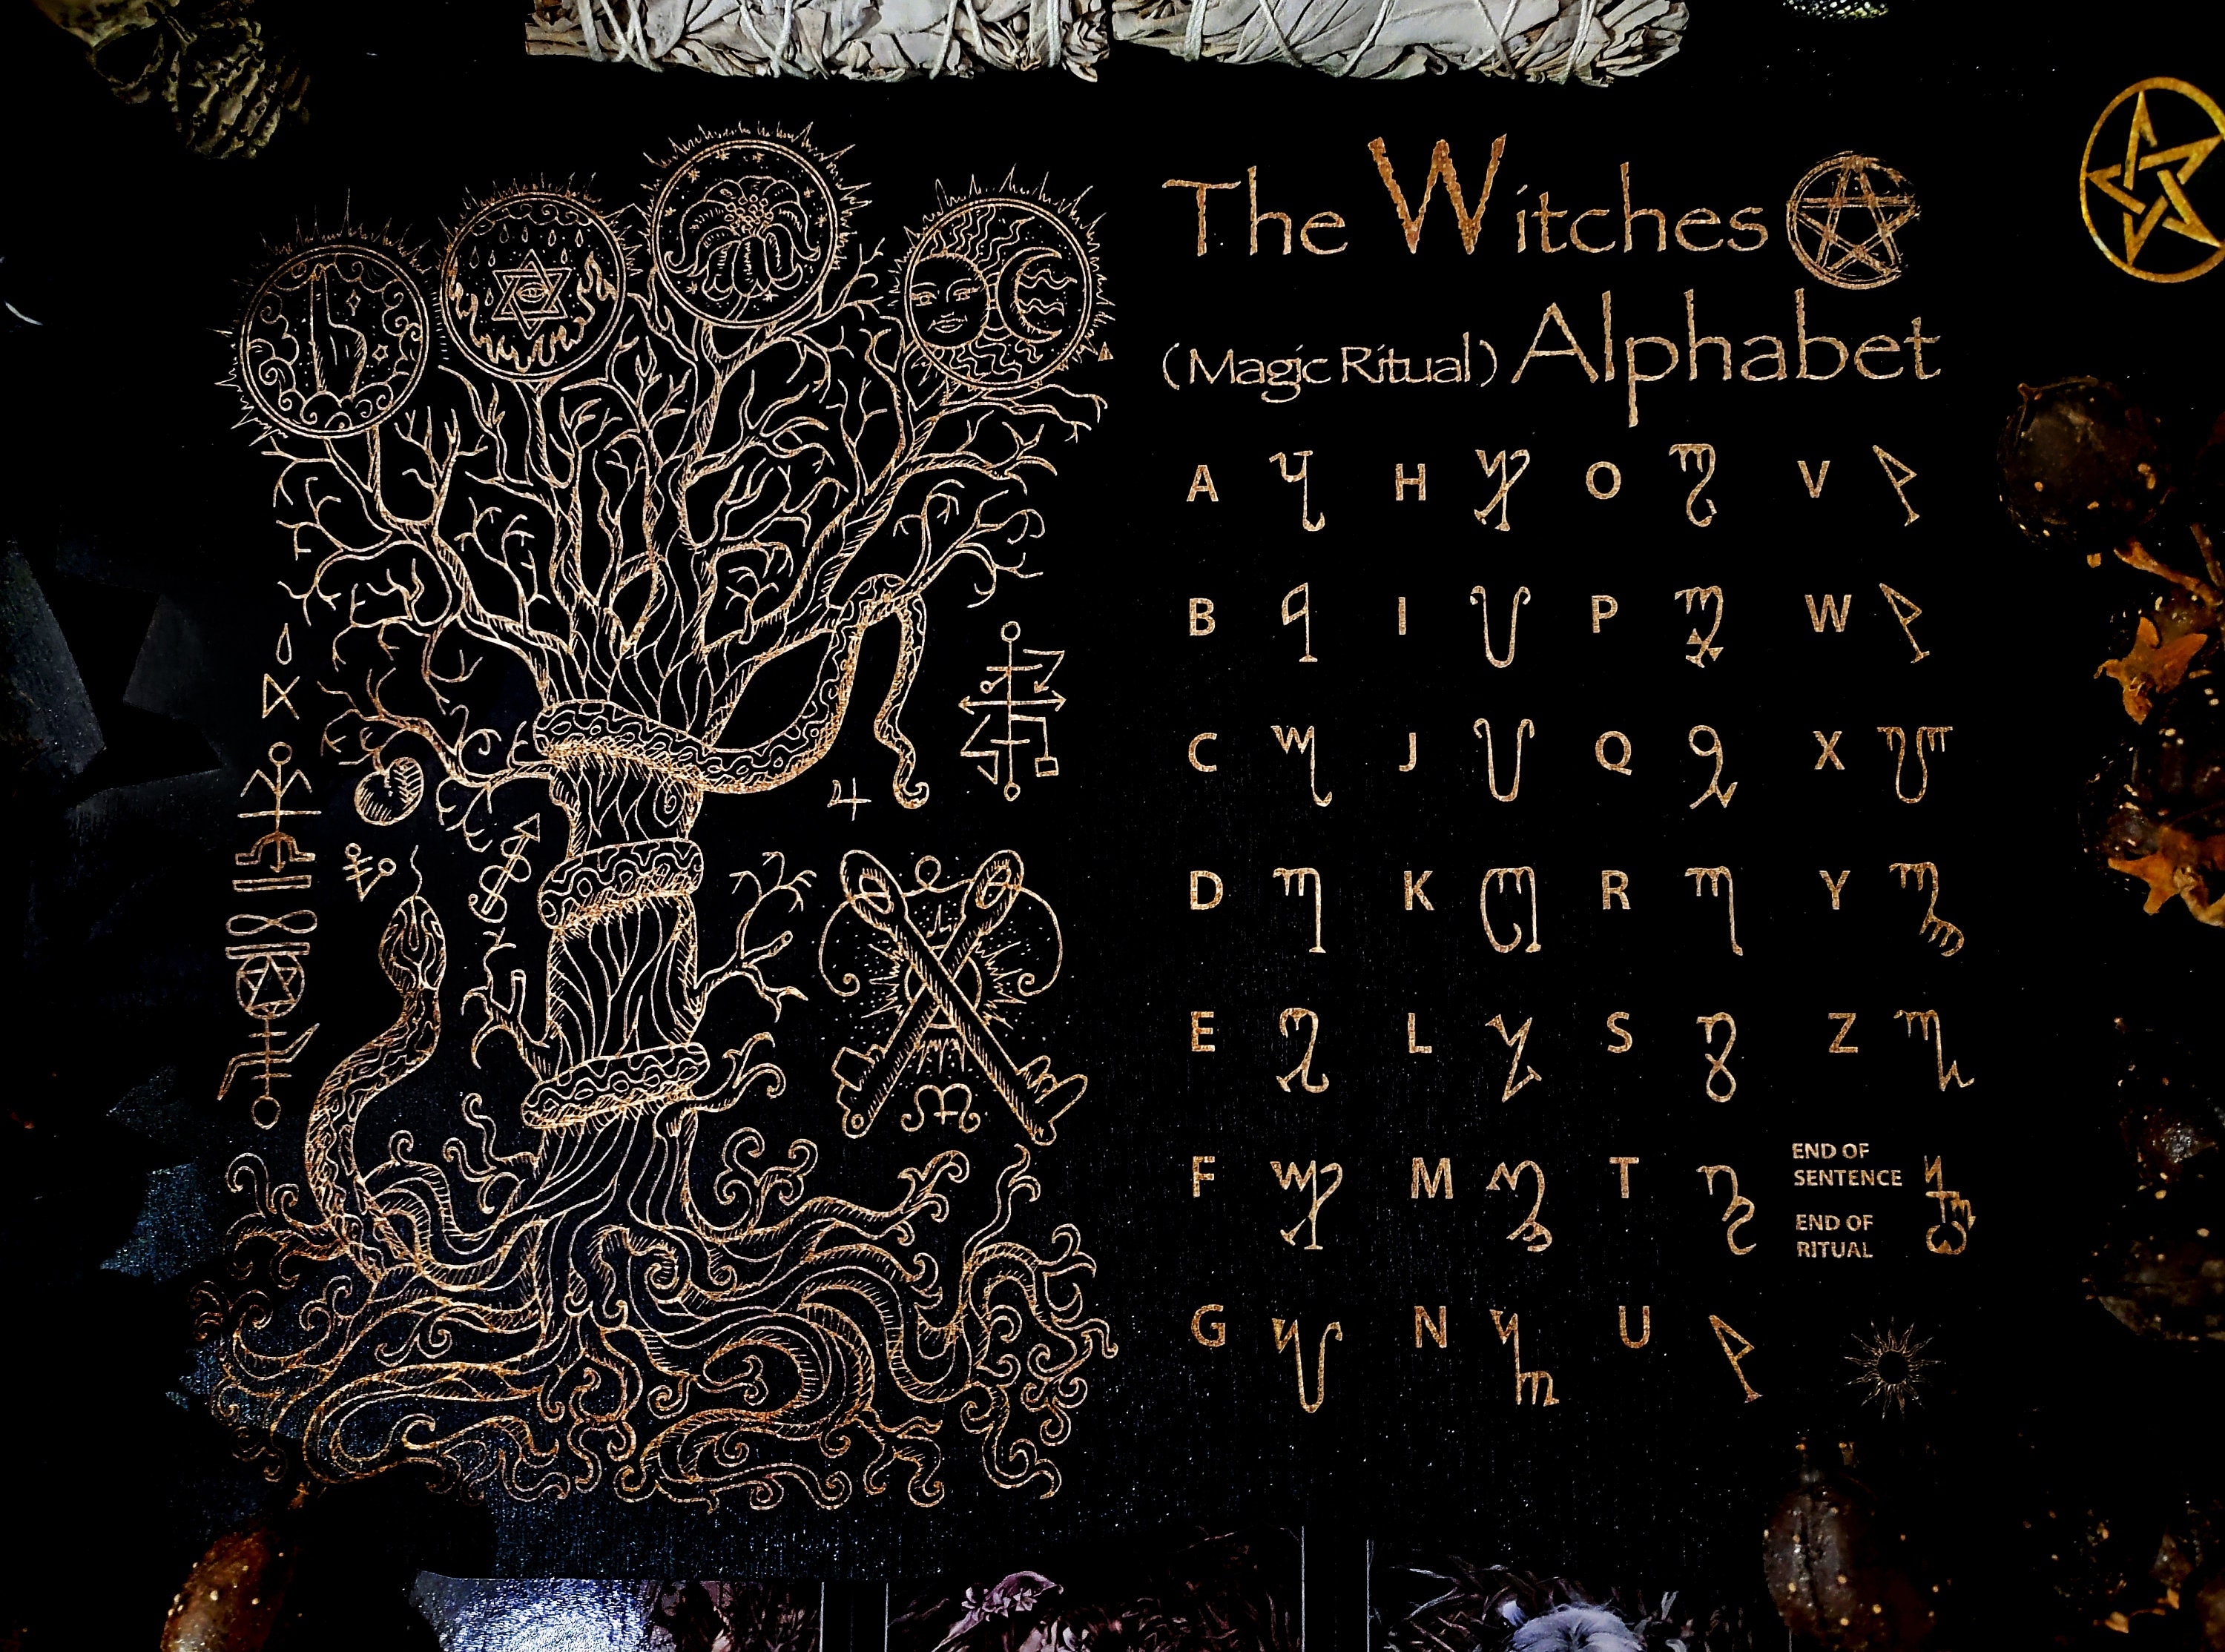 The Witches
(Magic Ritual) Alphabet
A H O V
B I P W
C J Q X
D K R Y
E L S Z
F M T END OF
SENTENCE
END OF
RITUAL
G N U